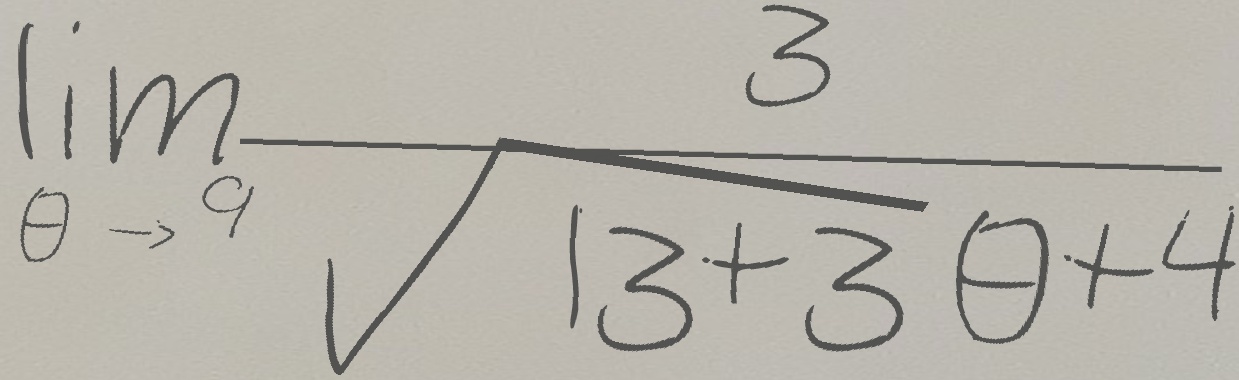 \lim_{\theta \to 9} \frac{3}{\sqrt{13+3\theta}+4}